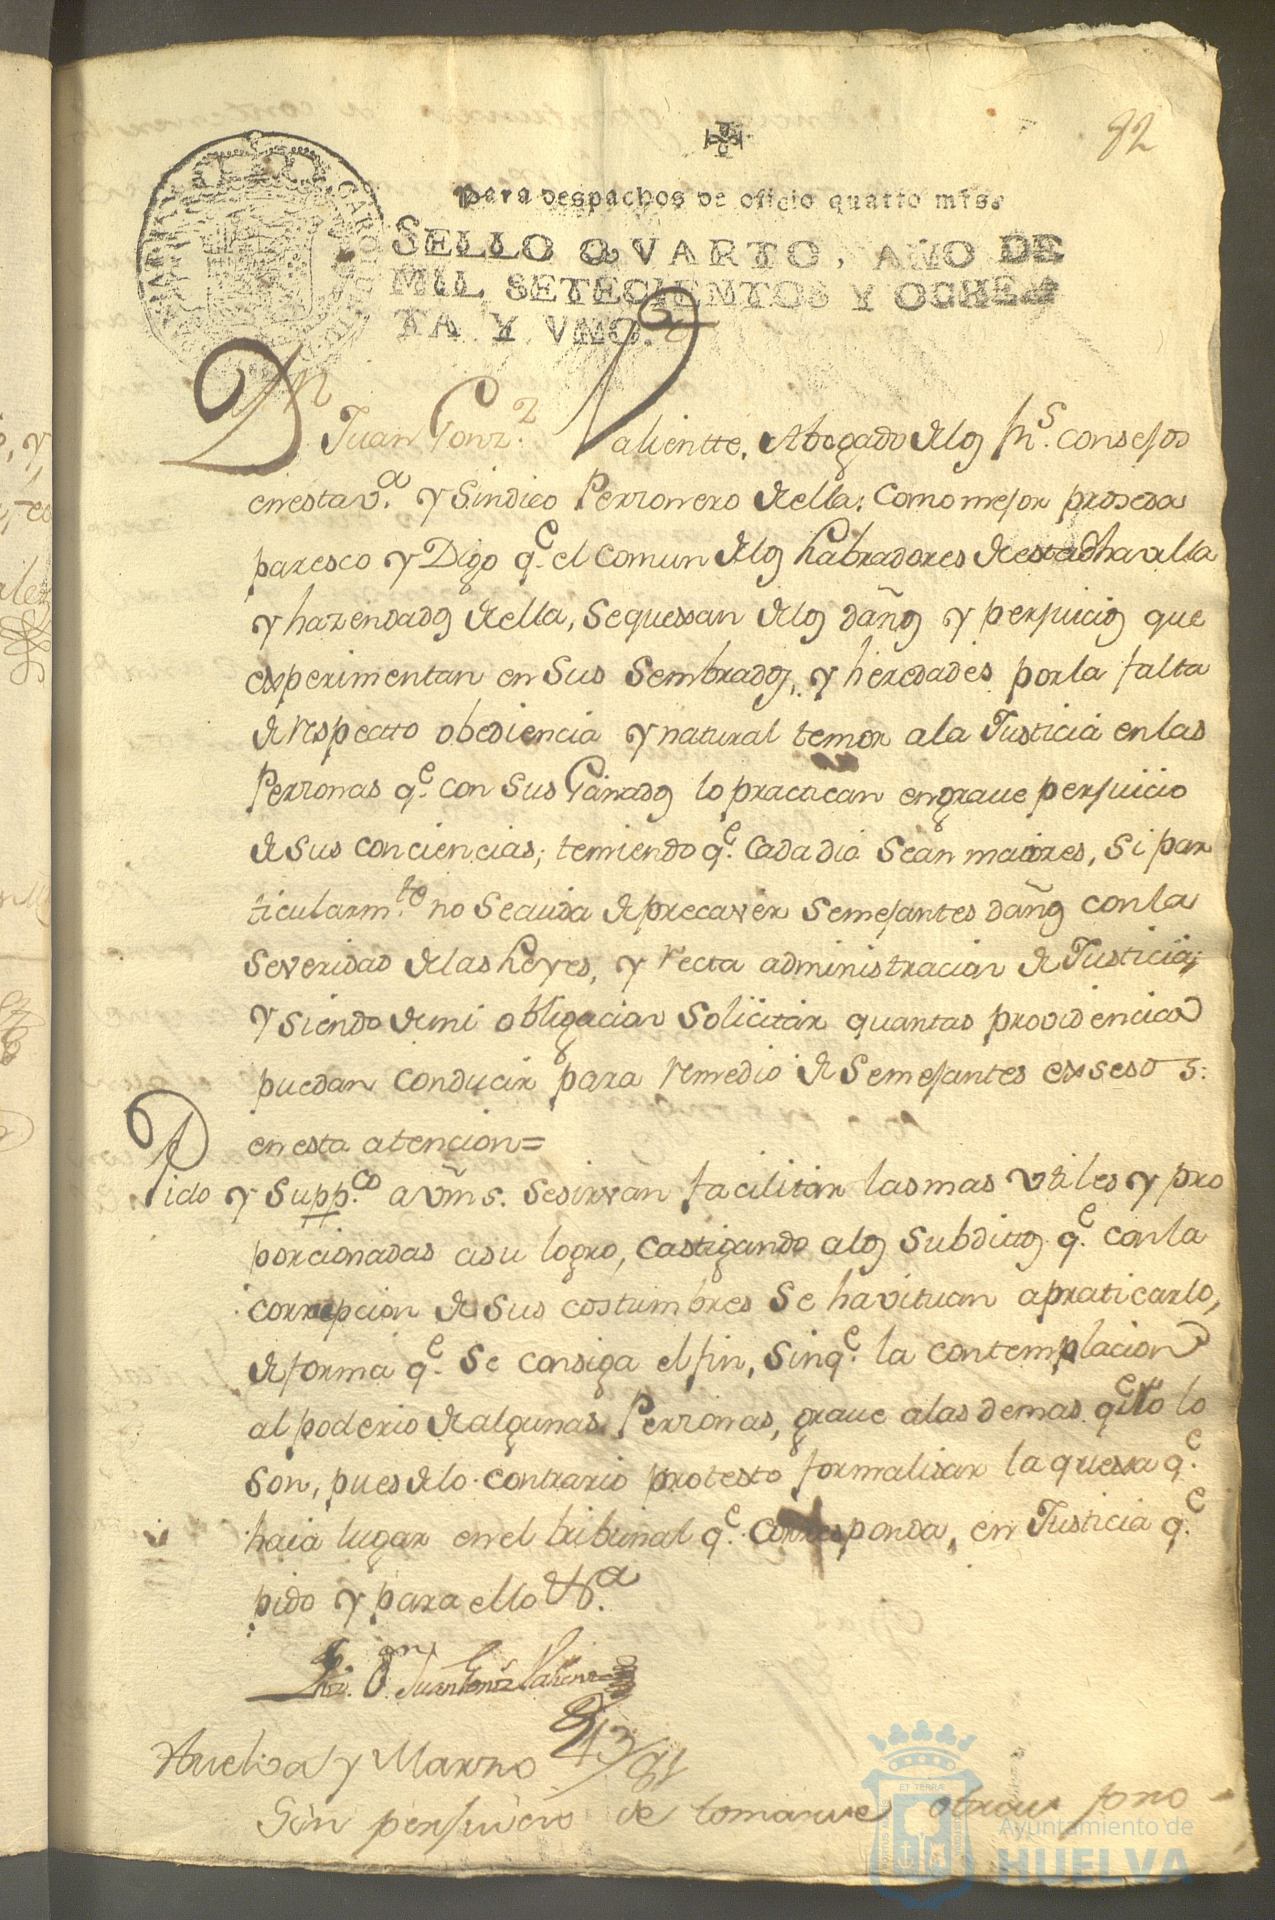 82
Para despachos de oficio quatro mrs.
SELLO QVARTO, AÑO DE
MIL SETECIENTOS Y OCHEN
TA Y VNO.
Dn Juan Gonz.z Valientte, Abogado de los Rs. consejos
en esta v.a y Sindico Perzonero de ella: como mejor proseda
paresco y Digo q.e el comun de los Labradores de esta dha villa
y hazendados de ella, se quexan de los daños y perjuicios que
experimentan en sus sembrados, y heredades por la falta
de respecto obediencia y natural temor a la Justicia en las
Perzonas q.e con sus Ganados lo practican en grave perjuicio
de sus conciencias; temiendo q.e cada dia sean maiores, si par
ticularm.te no se cuida de precaver semejantes daños con la
severidad de las Leyes, y recta administracion de Justicia;
y siendo de mi obligacion solicitar quantas providencias
puedan conducir para remedio de semejantes exsesos:
en esta atencion=
Pido y supp.co a vms. se sirvan facilitar las mas utiles y pro
porcionadas a su logro, castigando a los subdittos q.e con la
corrupcion de sus costumbres se havituan a praticarlo,
de forma q.e se consiga el fin, sin q.e la contemplacion
al poderio de algunas Perzonas, grave a las demas q.e no lo
son, pues de lo contrario protesto formalisar la quexa q.e
haia lugar en el tribunal q.e corresponda, en Justicia q.e
pido y para ello &.a
Liz. Dn Juan Gonz Valiente
Huelva y Marzo 13/81
Sin perjuicio de tomarse otras pro-
ET TERRÆ
Ayuntamiento de
HUELVA